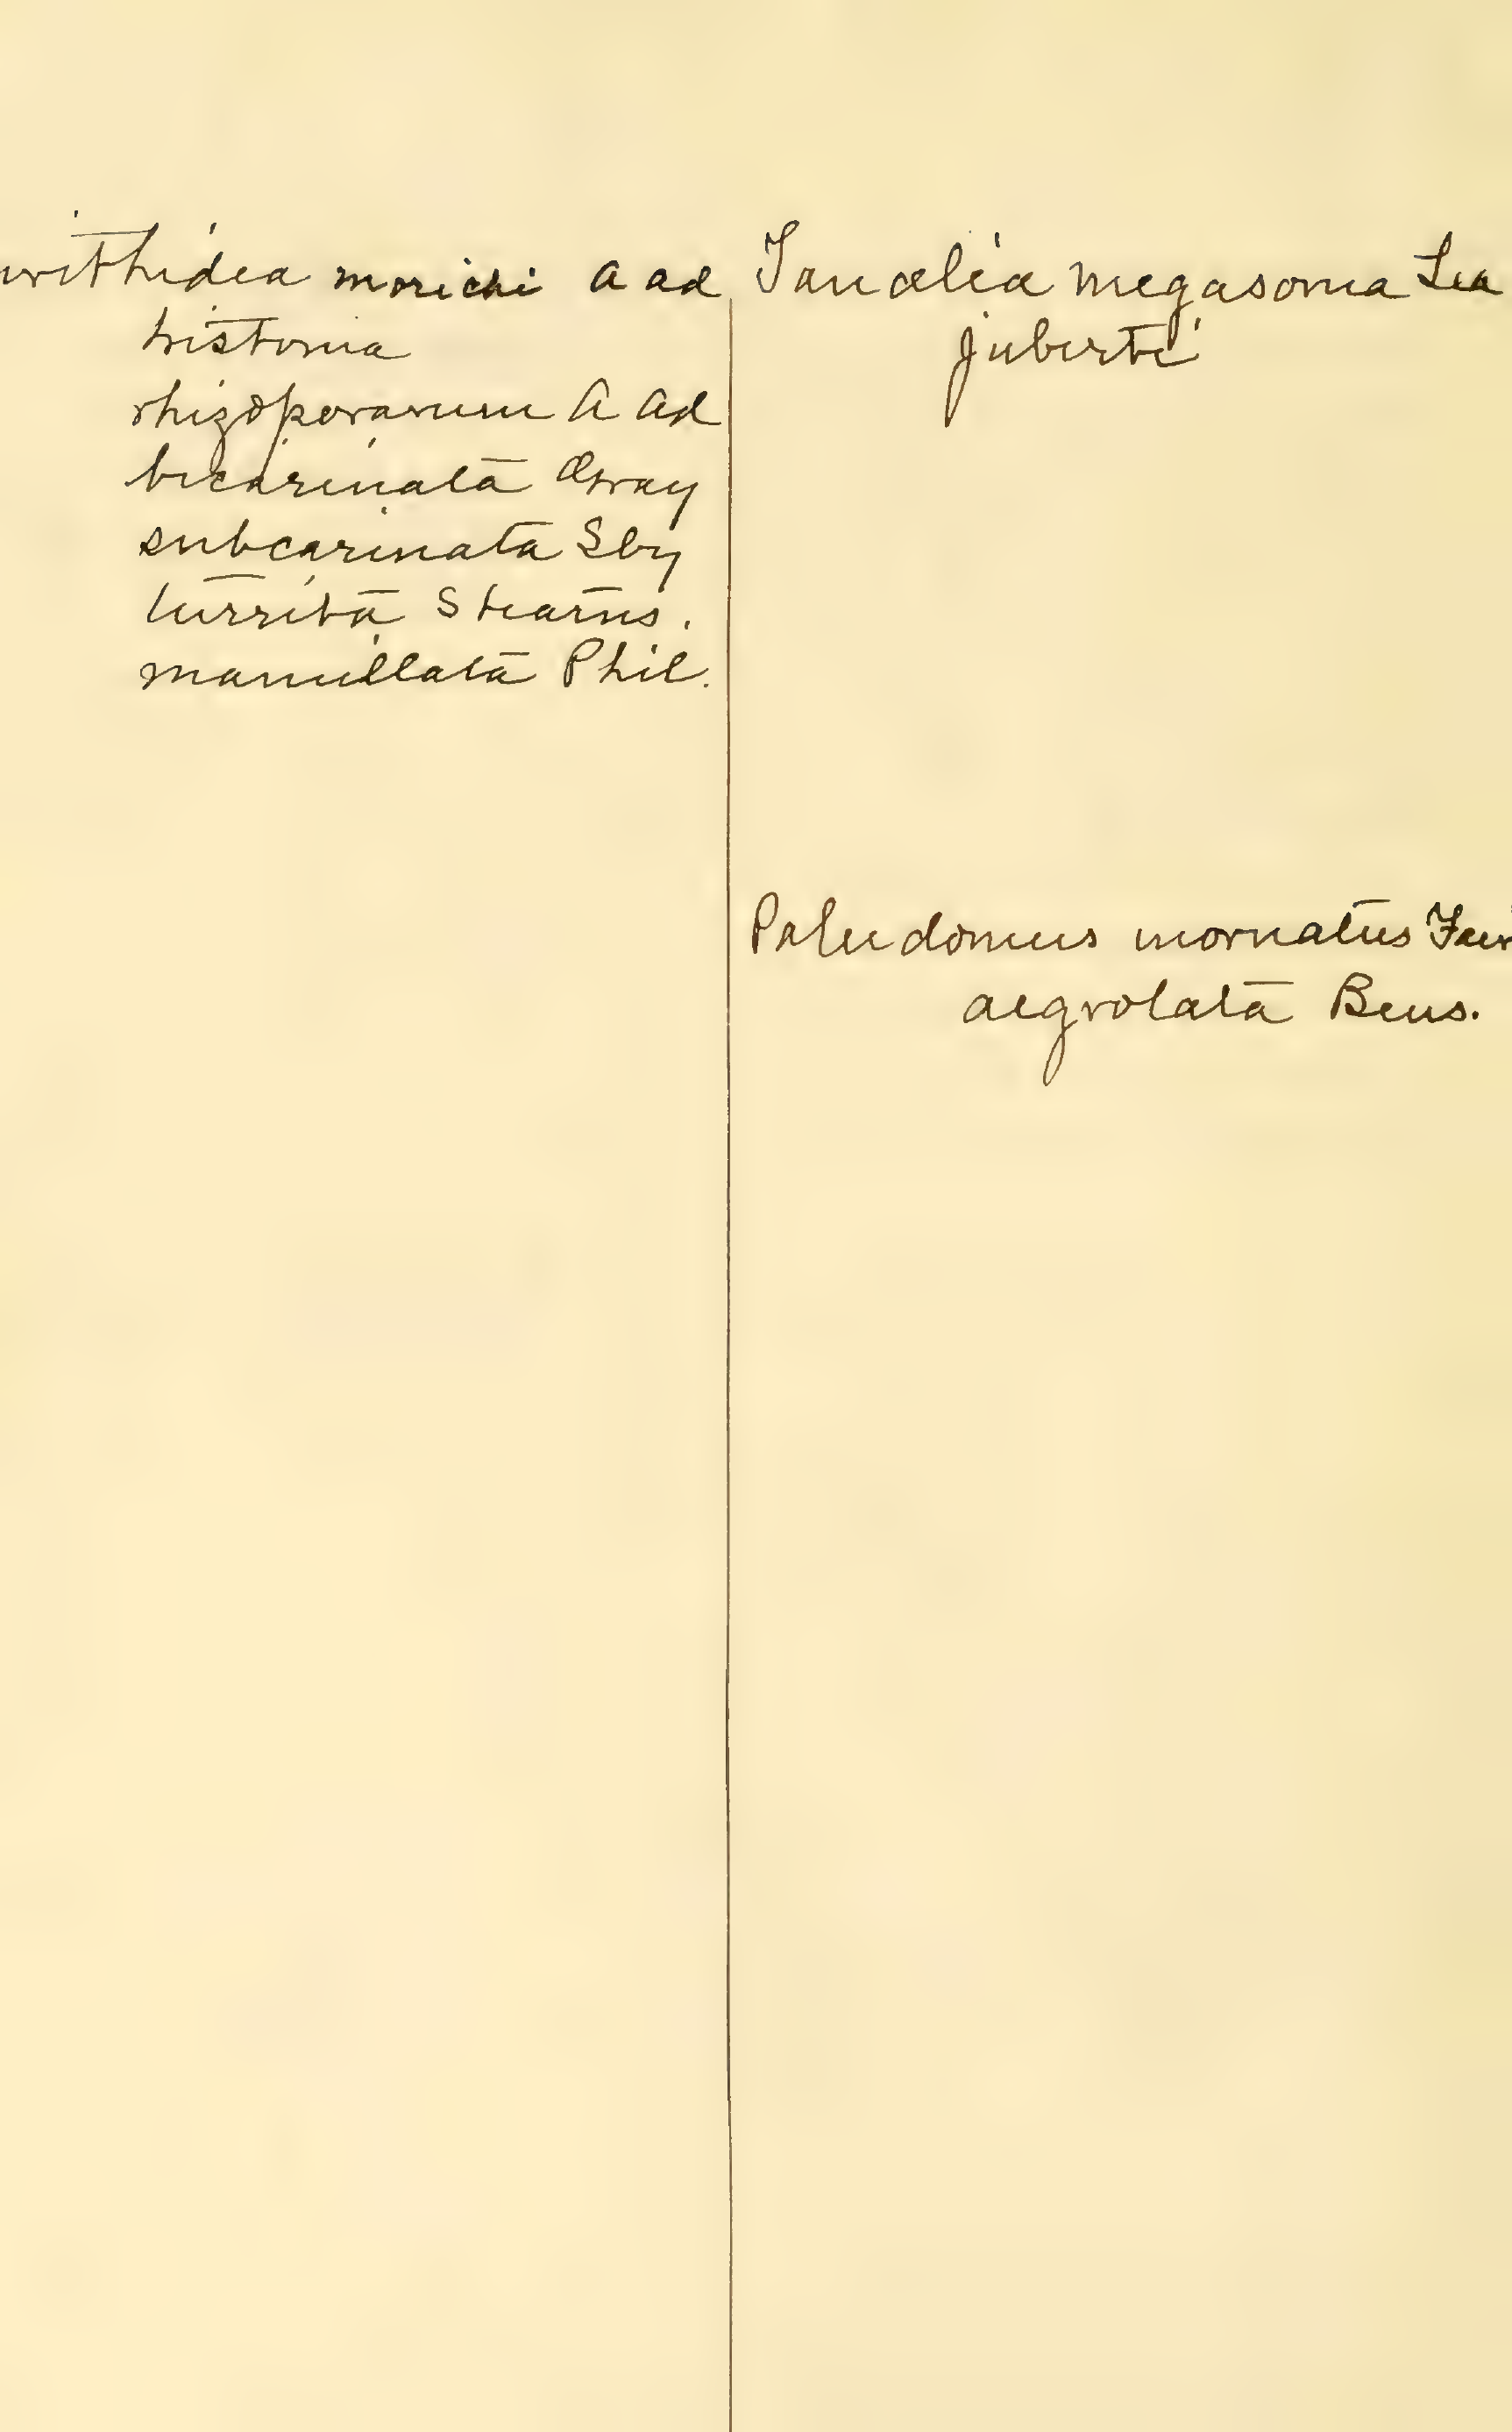 withidea morichi A Ad
tristoma
rhizoporarum A Ad
bicarinata Gray
subcarinata Sby
turrita Stearns.
mamillata Phil.
Tanalia megasoma Lea
juberti
Paludomus inornatus
aegrolata Bens.